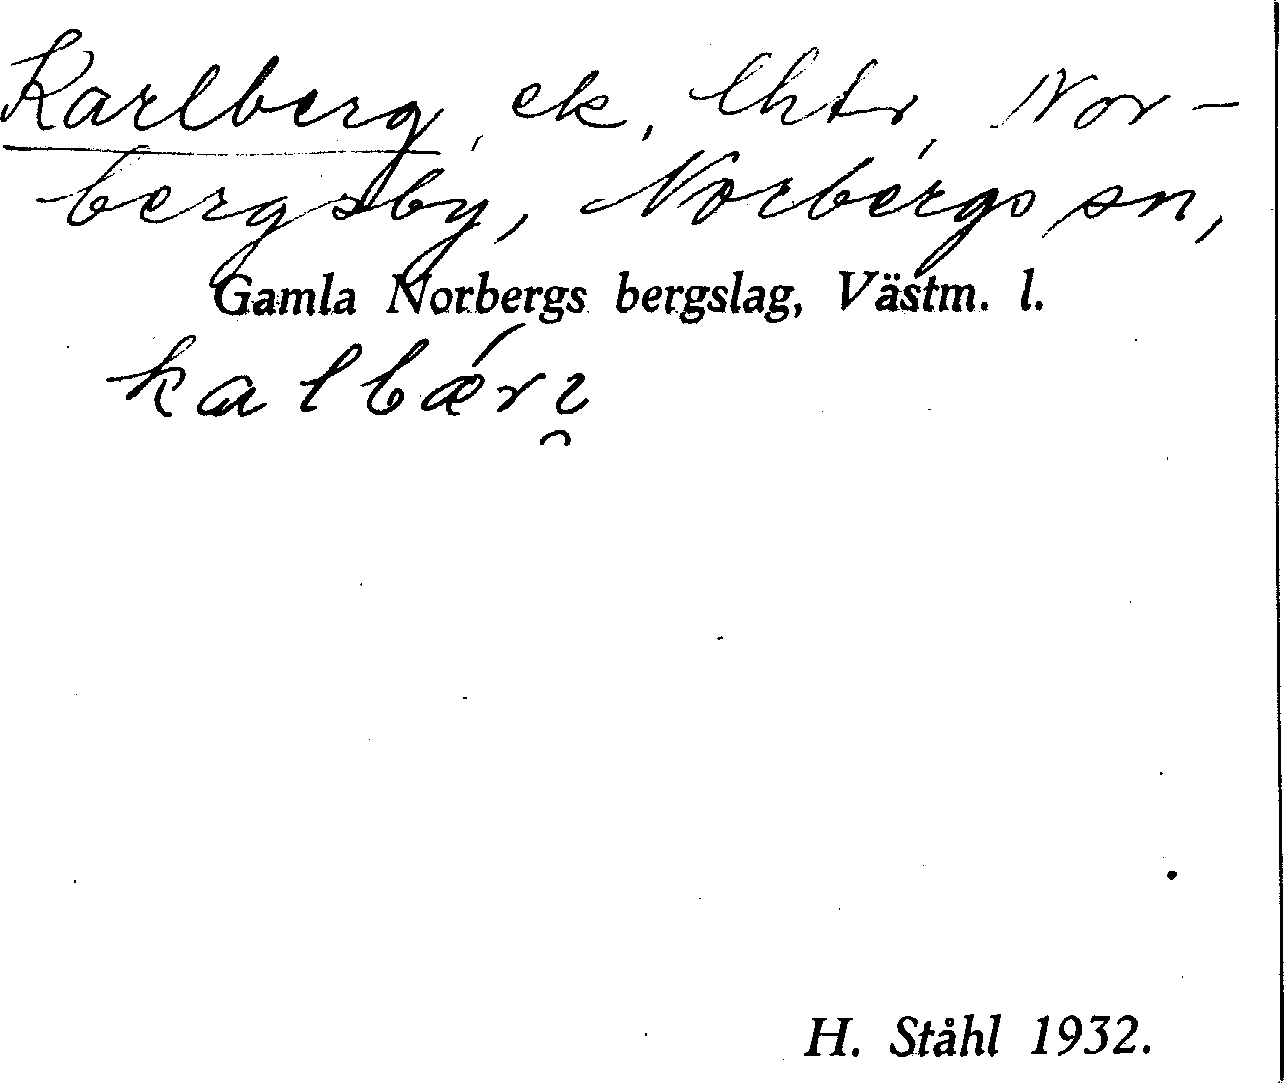 Karlberg, ek, lht r, Nor-
bergsby, Norbergs sn,
Gamla Norbergs bergslag, Västm. l.
kalbǽr
H. Ståhl 1932.